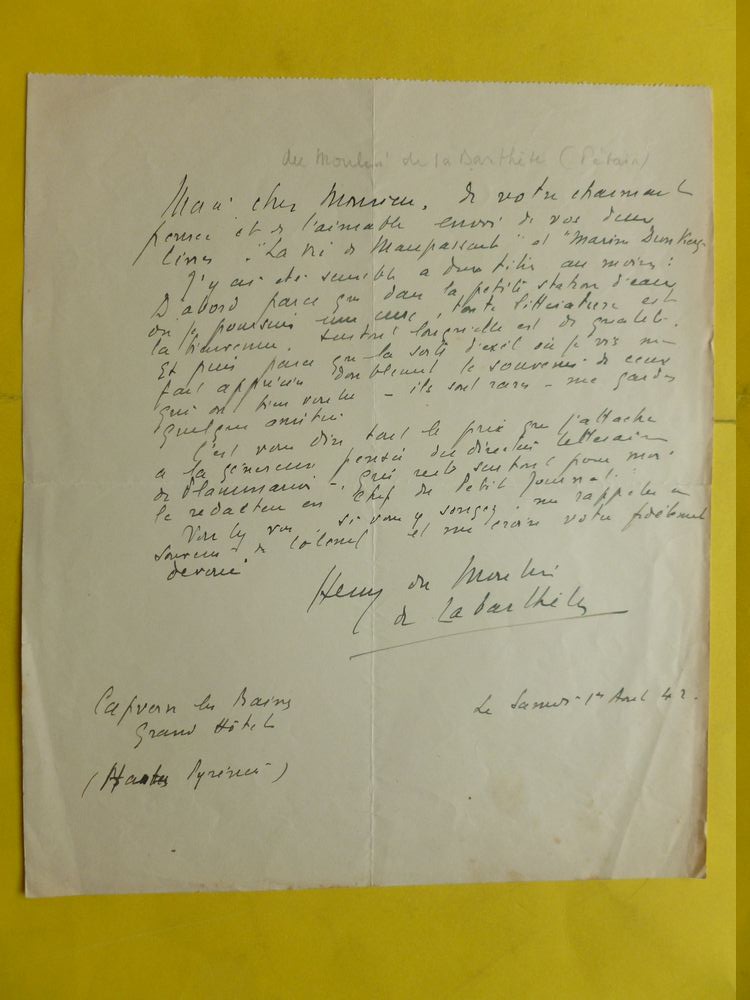 du Moulin de la Barthète (Pétain)
Merci cher Monsieur, de votre charmante
pensée et de l'aimable envoi de vos deux
livres "La vie de Maupassant" et "Marion
J'y ai été sensible a double titre au moins :
D'abord parce que dans la petite station d'eaux
où je poursuis une cure, toute littérature est
la bienvenue. Surtout lorsqu'elle est de qualité.
Et puis parce que la sorte d'exil où je vis me
fait apprécier doublement le souvenir de ceux
qui ont bien voulu - ils sont rares - me garder
quelque amitié.
C'est vous dire tout le prix que j'attache
a la généreuse pensée du directeur littéraire
de Flammarion - qui reste surtout pour moi
le rédacteur en chef du Petit Journal.
Veuillez si vous y songez, me rappeler au
souvenir de et me croire votre fidèlement
dévoué
Henry du Moulin
de Labarthète
Capvern les Bains
Grand Hôtel
(Hautes Pyrénées)
Le Samedi 1er Aout 42.